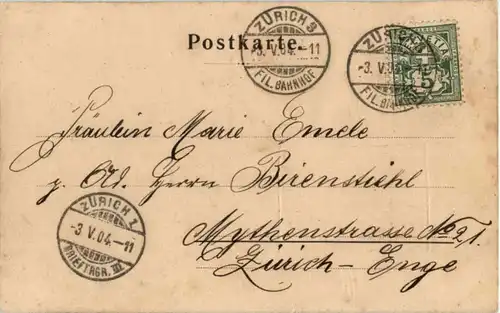 Postkarte.
ZÜRICH 3
-3.V.04.-11
FIL. BAHNHOF
ZÜRICH 3
-3.V.04.-11
FIL. BAHNHOF
5
Fräulein Marie Emele
p. Ad. Herrn Birenstiehl
Mythenstrasse No 21.
Zürich-Enge
ZÜRICH 1
-3.V.04.-11
BRIEFTRGR. III